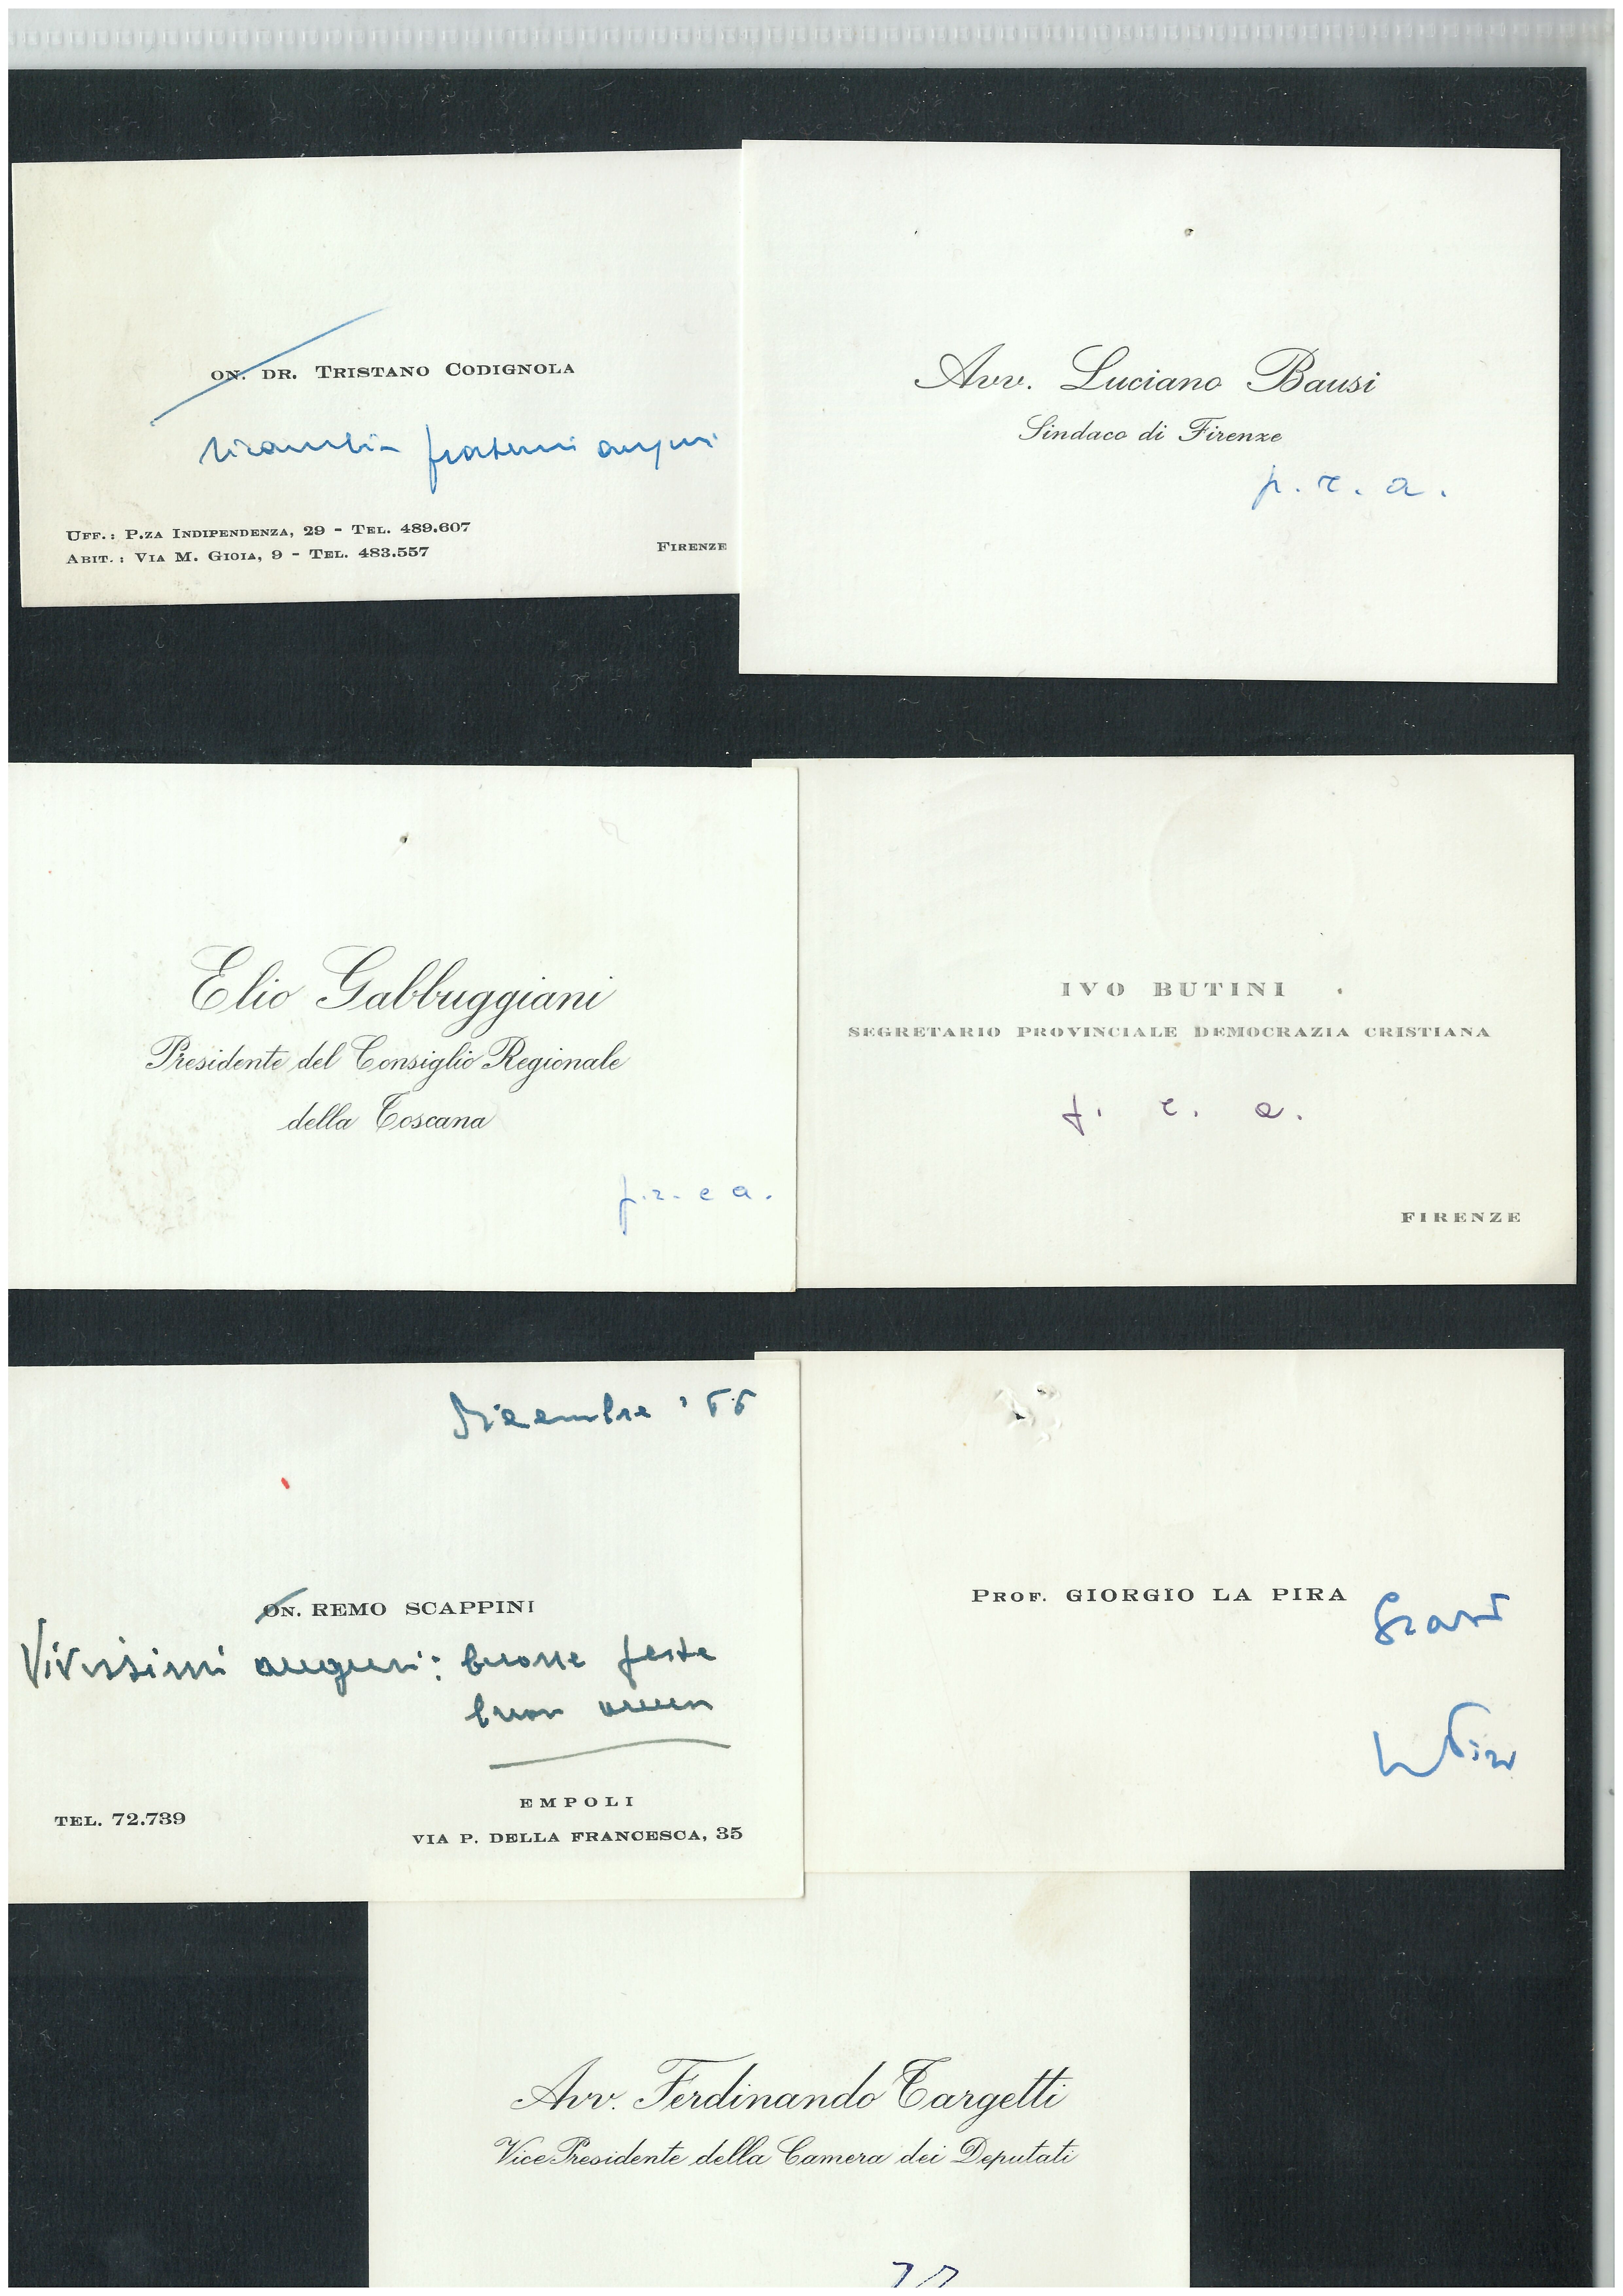 ON. DR. TRISTANO CODIGNOLA
ricambia fraterni auguri
UFF.: P.ZA INDIPENDENZA, 29 - TEL. 489.607
ABIT.: VIA M. GIOIA, 9 - TEL. 483.557
FIRENZE
Avv. Luciano Bausi
Sindaco di Firenze
p. r. a.
Elio Gabbuggiani
Presidente del Consiglio Regionale
della Toscana
p. r. e a.
IVO BUTINI
SEGRETARIO PROVINCIALE DEMOCRAZIA CRISTIANA
f. e. a.
FIRENZE
Dicembre '66
ON. REMO SCAPPINI
Vivissimi auguri: buone feste
buon anno
TEL. 72.739
EMPOLI
VIA P. DELLA FRANCESCA, 35
PROF. GIORGIO LA PIRA
La Pira
Avv. Ferdinando Targetti
Vice Presidente della Camera dei Deputati